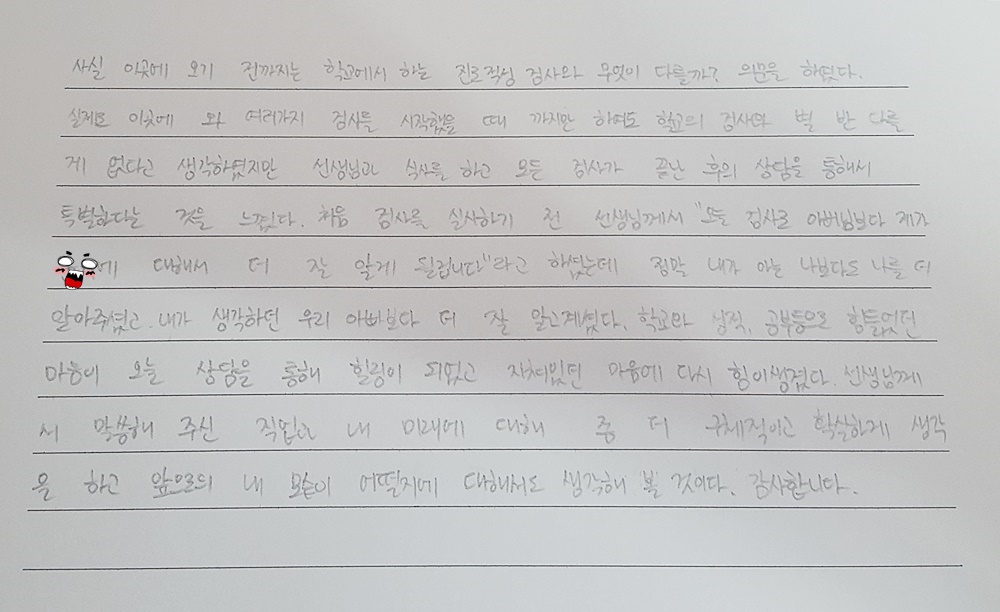 사실 이곳에 오기 전까지는 학교에서 하는 진로적성 검사와 무엇이 다를까? 의문을 하였다.
실제로 이곳에 와 여러가지 검사를 시작했을 때 까지만 하여도 학교의 검사와 별 반 다를
게 없다고 생각하였지만 선생님과 식사를 하고 모든 검사가 끝난 후의 상담을 통해서
특별하다는 것을 느꼈다. 처음 검사를 실시하기 전 선생님께서 "오늘 검사로 아버님보다 제가
에 대해서 더 잘 알게 될겁니다"라고 하셨는데 정말 내가 아는 나보다도 나를 더
알아주셨고. 내가 생각하던 우리 아빠보다 더 잘 알고계셨다. 학교와 성적, 공부등으로 힘들었던
마음이 오늘 상담을 통해 힐링이 되었고 지쳐있던 마음에 다시 힘이생겼다. 선생님께
서 말씀해 주신 직업과 내 미래에 대해 좀 더 구체적이고 확실하게 생각
을 하고 앞으로의 내 모습이 어떨지에 대해서도 생각해 볼 것이다. 감사합니다.